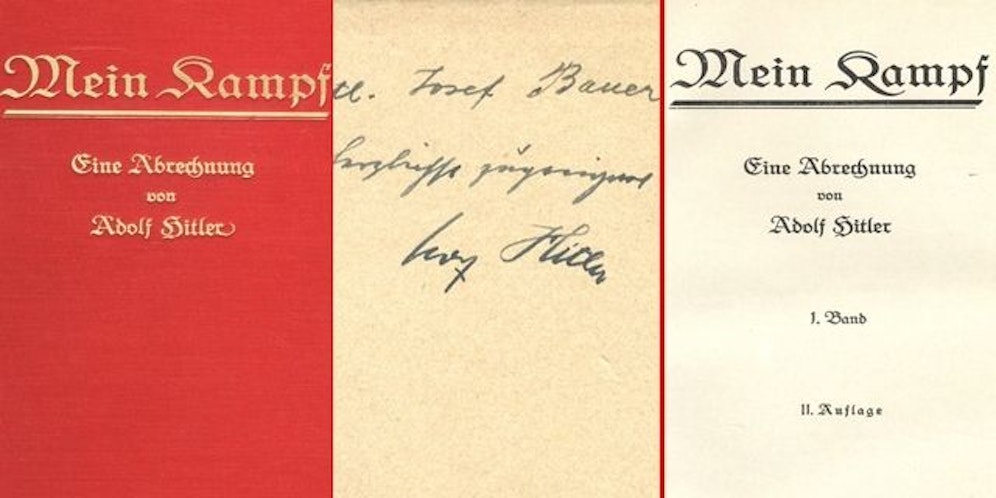 Mein Kampf
Eine Abrechnung
von
Adolf Hitler
Josef Bauer
herzlichst zugeeignet
Hitler
Mein Kampf
Eine Abrechnung
von
Adolf Hitler
1. Band
II. Auflage